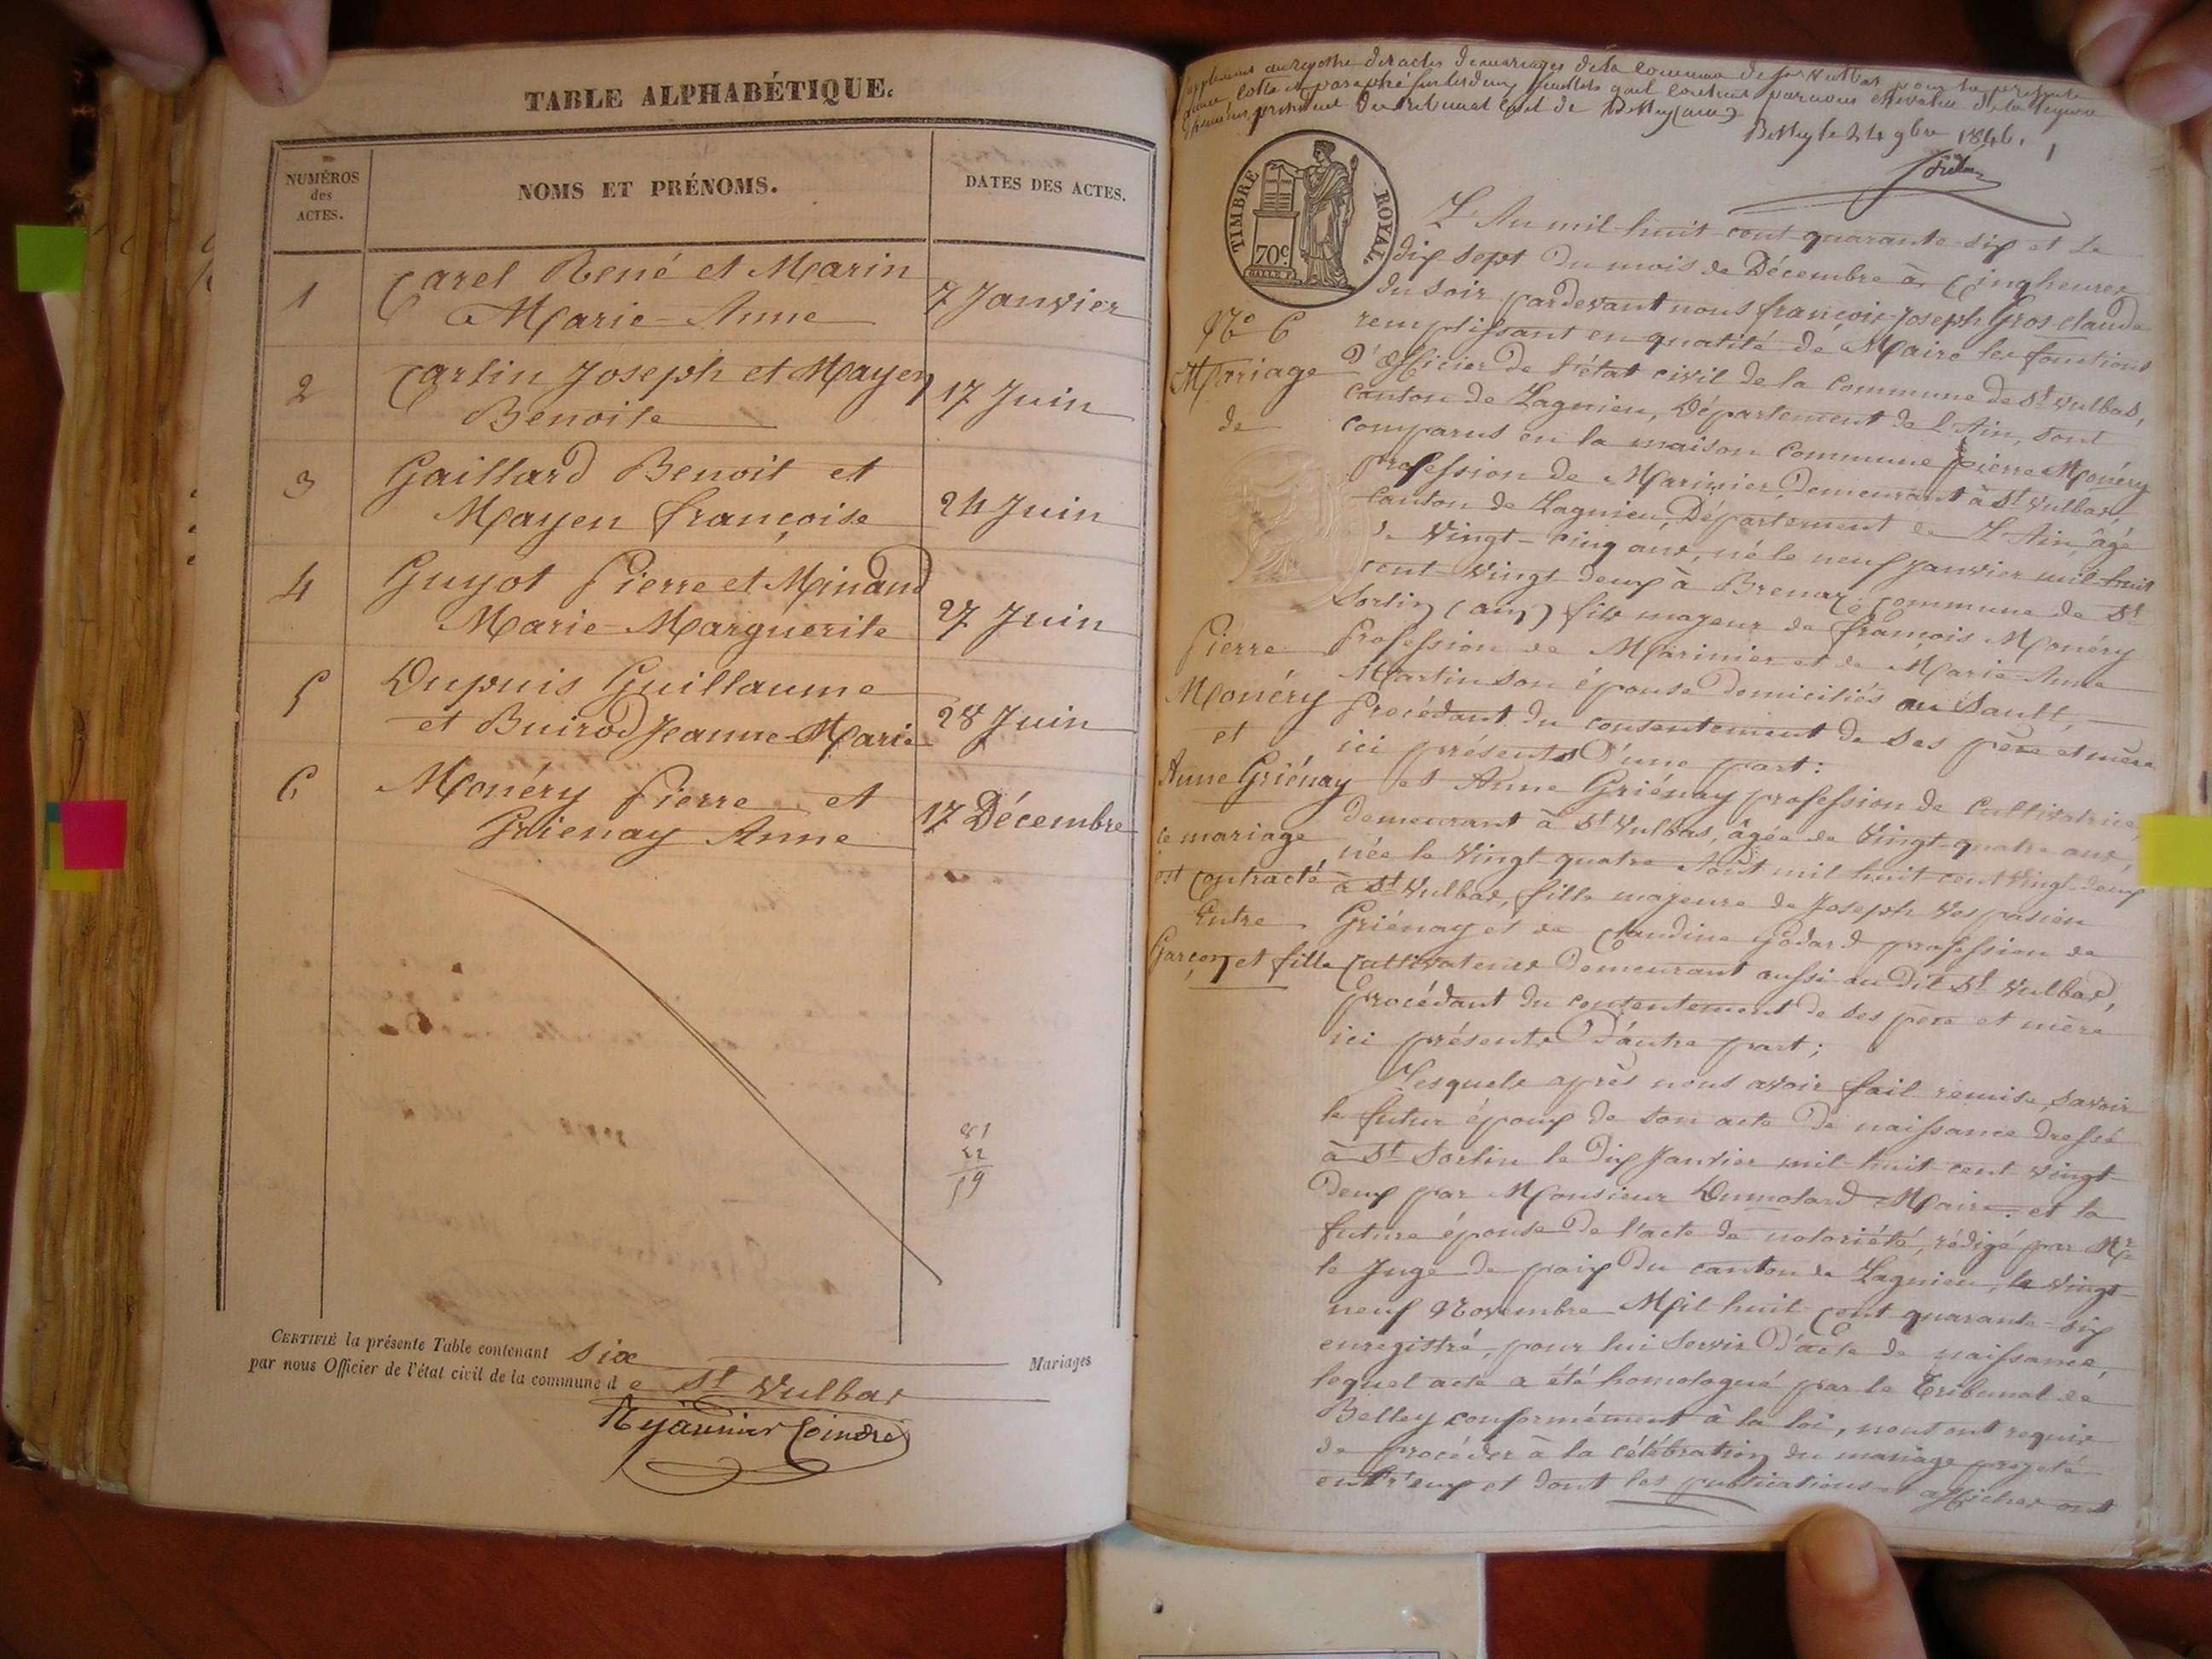 TABLE ALPHABÉTIQUE.
NUMÉROS
des
ACTES.
NOMS ET PRÉNOMS.
DATES DES ACTES.
1
Carel René et Marin
Marie-Anne
7 Janvier
2
Carlin Joseph et Mayen
Benoite
17 Juin
3
Gaillard Benoit et
Mayen françoise
24 Juin
4
Guyot Pierre et Minand
Marie-Marguerite
27 Juin
5
Dupuis Guillaume
et Buirod Jeanne-Marie
28 Juin
6
Monéry Pierre et
Grienay Anne
17 Décembre
CERTIFIÉ la présente Table contenant six Mariages
par nous Officier de l'état civil de la commune de St Vulbas
au registre des actes de mariages de la commune de St Vulbas pour la présente
année cotté et paraphé sur les deux feuillets qu'il contient par nous
président du tribunal civil de Belley (ain)
Belley le 24 9bre 1846.
TIMBRE ROYAL
70c.
L'An mil-huit-cent-quarante-six et Le
dix sept du mois de Décembre à Cinq heures
du soir pardevant nous françois-Joseph Gros-claude
remplissant en qualité de Maire les fonctions
d'officier de l'état civil de la commune de St Vulbas,
canton de Lagnieu, Département de l'Ain, sont
comparus en la maison commune Pierre Monéry
profession de Marinier, demeurant à St Vulbas,
canton de Lagnieu, Département de L'Ain, âgé
de Vingt-cinq ans, né le neuf Janvier mil-huit
cent-vingt-deux à Brenaz, commune de St
Sorlin (ain) fils majeur de françois Monéry
Profession de Marinier et de Marie-Anne
Martin son épouse domiciliés au Sault,
Procédant du consentement de ses père et mère
ici présents d'une part:
et Anne Griénay profession de Cultivatrice,
demeurant à St Vulbas, âgée de Vingt-quatre ans,
née le Vingt-quatre Août mil-huit-cent vingt-deux
à St Vulbas, fille majeure de Joseph Vespasien
Griénay et de Claudine Godard profession de
Cultivateurs demeurant aussi au dit St Vulbas,
Procédant du consentement de ses père et mère
ici présents d'autre part;
Lesquels après nous avoir fait remise, savoir
le futur époux de son acte de naissance dressé
à St Sorlin le dix Janvier mil-huit-cent-vingt-
deux par Monsieur Dumolard Maire: et la
future épouse de l'acte de notoriété, rédigé par Mr
le Juge de paix du canton de Lagnieu, le vingt-
neuf Novembre Mil-huit-cent quarante-six
enregistré, pour lui servir d'acte de naissance,
lequel acte a été homologué par le Tribunal de
Belley conformément à la loi, nous ont requis
de procéder à la célébration du mariage projeté
entr'eux et dont les publications et affiches ont
No 6
Mariage
de
Pierre
Monéry
et
Anne Griénay
ce mariage
est contracté
Entre
Garçon et fille